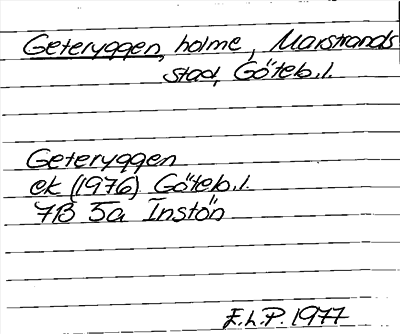 Geteryggen, holme, Marstrands
stad, Göteb.l.
Geteryggen
ek (1976) Göteb.l.
7B 5a Instön
E.L.P. 1977